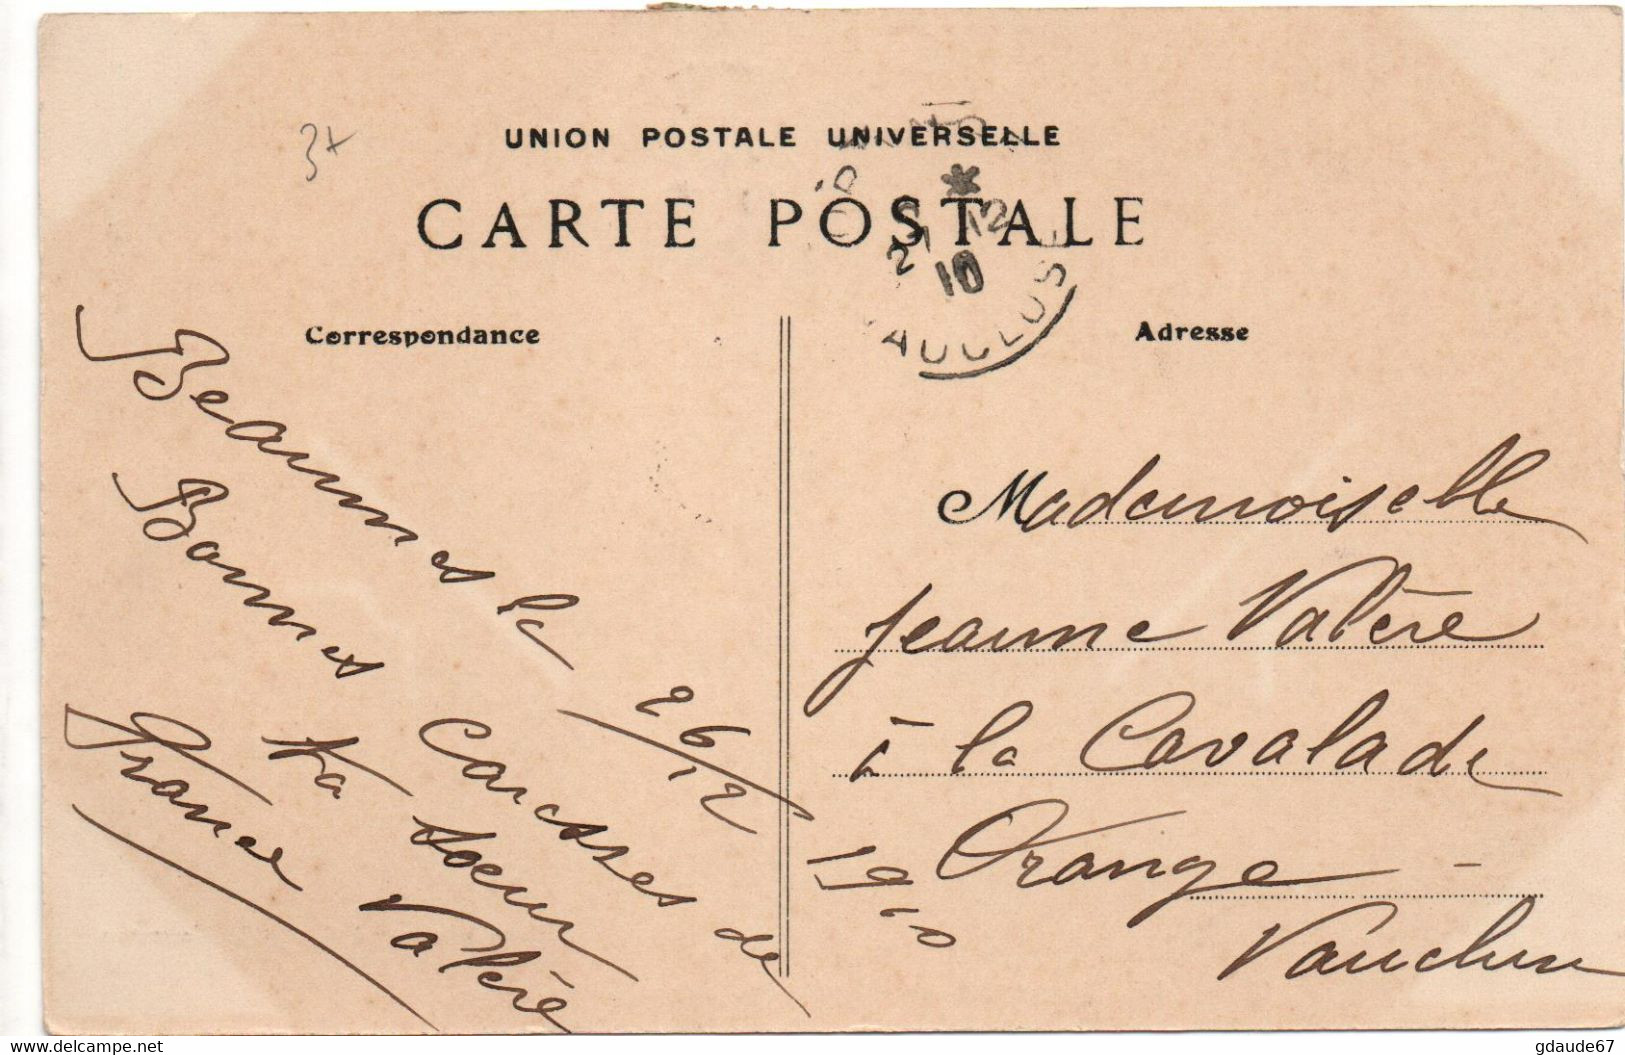 3+
UNION POSTALE UNIVERSELLE
CARTE POSTALE
27 12
10
VAUCLUSE
Correspondance
Adresse
Beaumes le 26/12 1910
Bonnes Caresses de
ta soeur
France Valère
Mademoiselle
Jeanne Valère
à la Cavalade
Orange -
Vaucluse
www.delcampe.net
gdaude67